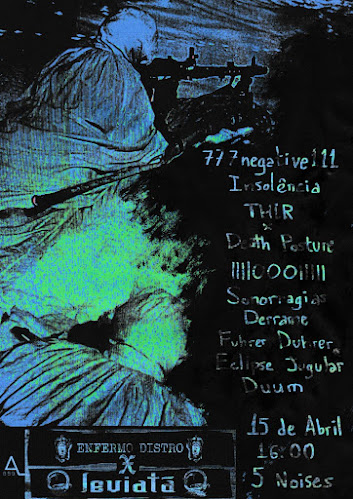 777negative111
Insolência
THIR
x
Death Posture
|||||000|||||
Sonorragias
Derrame
Fuhrer Duhrer
Eclipse Jugular
Duum
15 de Abril
16:00
5 Noises
ENFERMO DISTRO
X
leviatã